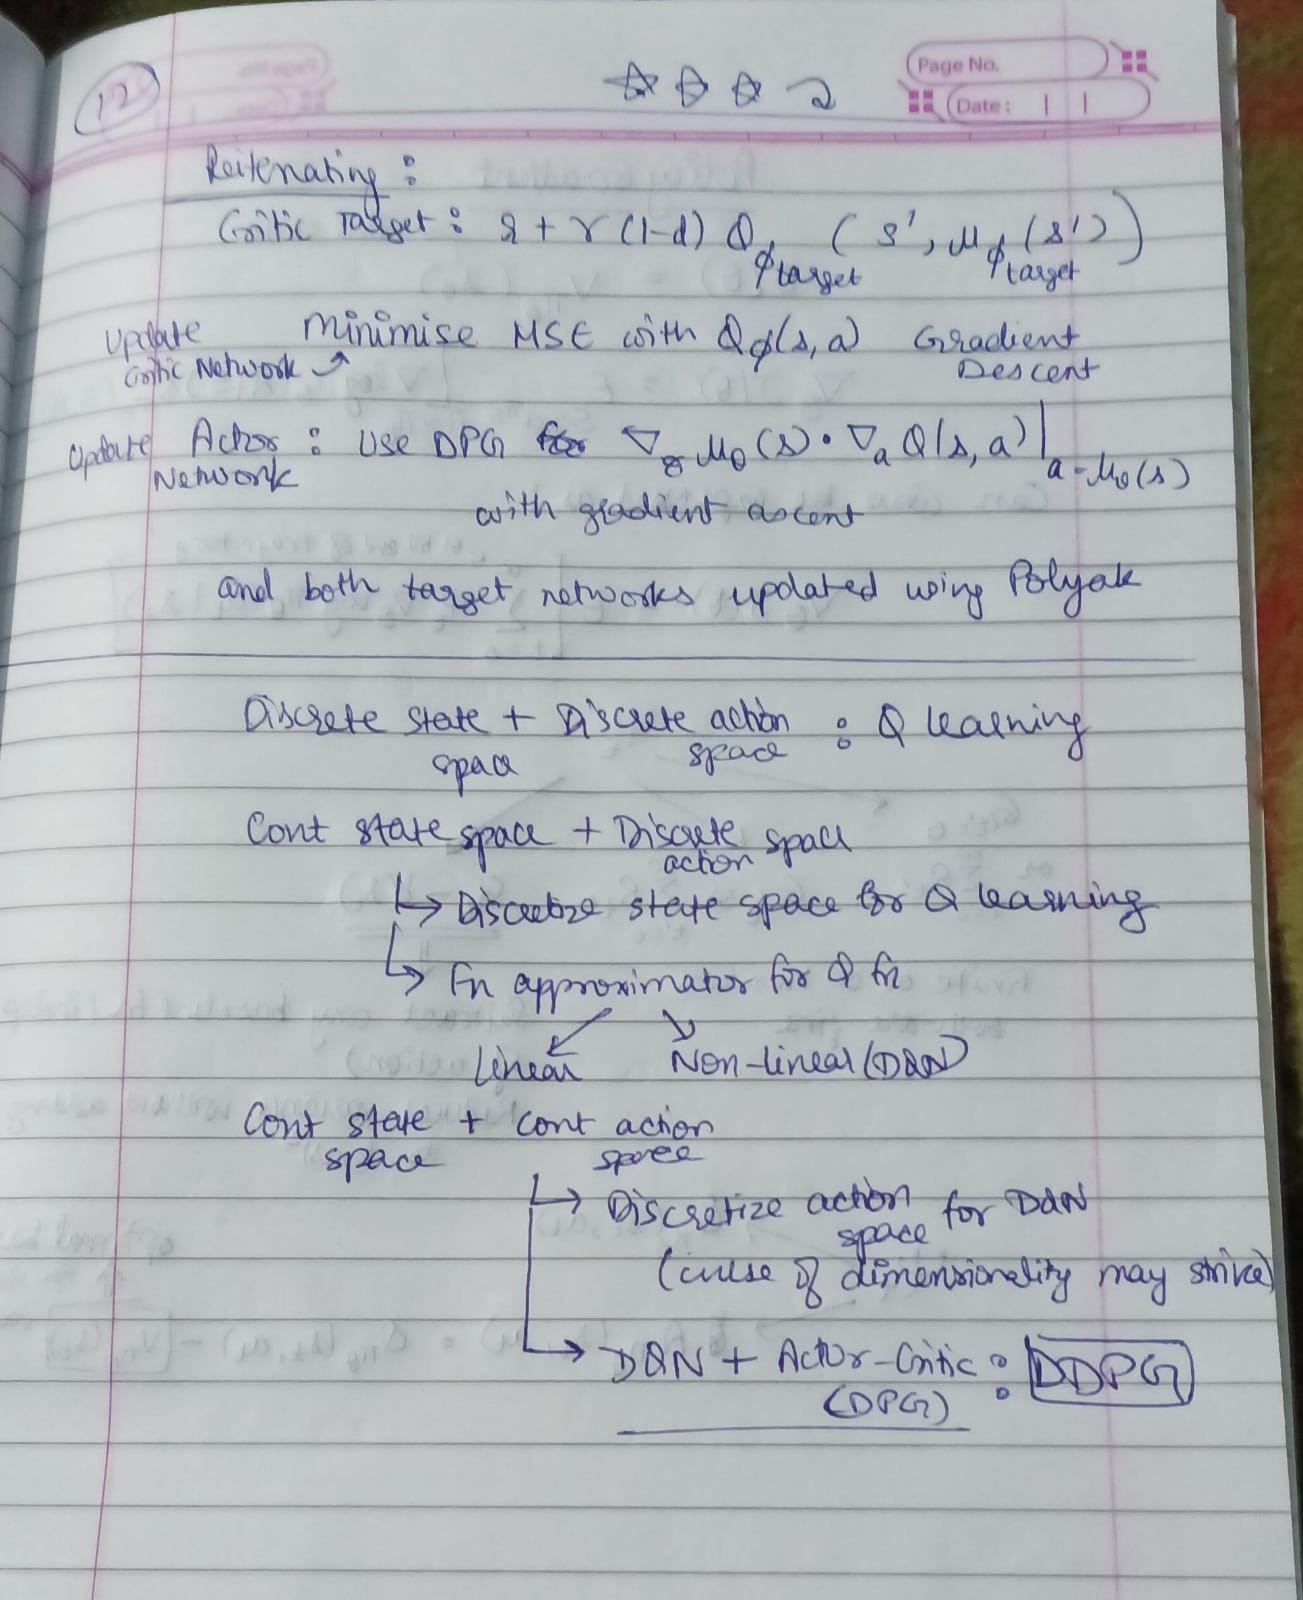 12
Page No.
Date :
Reiterating :
Critic Target : r + γ (1-d) Q_ϕtarget ( s', μ_ϕtarget (s') )
Update Critic Network ↗ Minimise MSE with Qϕ(s, a) Gradient Descent
Update Actor Network : Use DPG for ∇_θ μ_θ (s) • ∇_a Q(s, a) |_a=μ_θ(s)
with gradient ascent
and both target networks updated using Polyak
Discrete state space + Discrete action space : Q learning
Cont state space + Discrete action space
↳ Discretize state space for Q learning
↳ Fn approximator for Q fn
↙ ↘
Linear Non-linear (DQN)
Cont state space + cont action space
↳ Discretize action space for DQN
(curse of dimensionality may strike)
↳ DQN + Actor-Critic (DPG) : DDPG